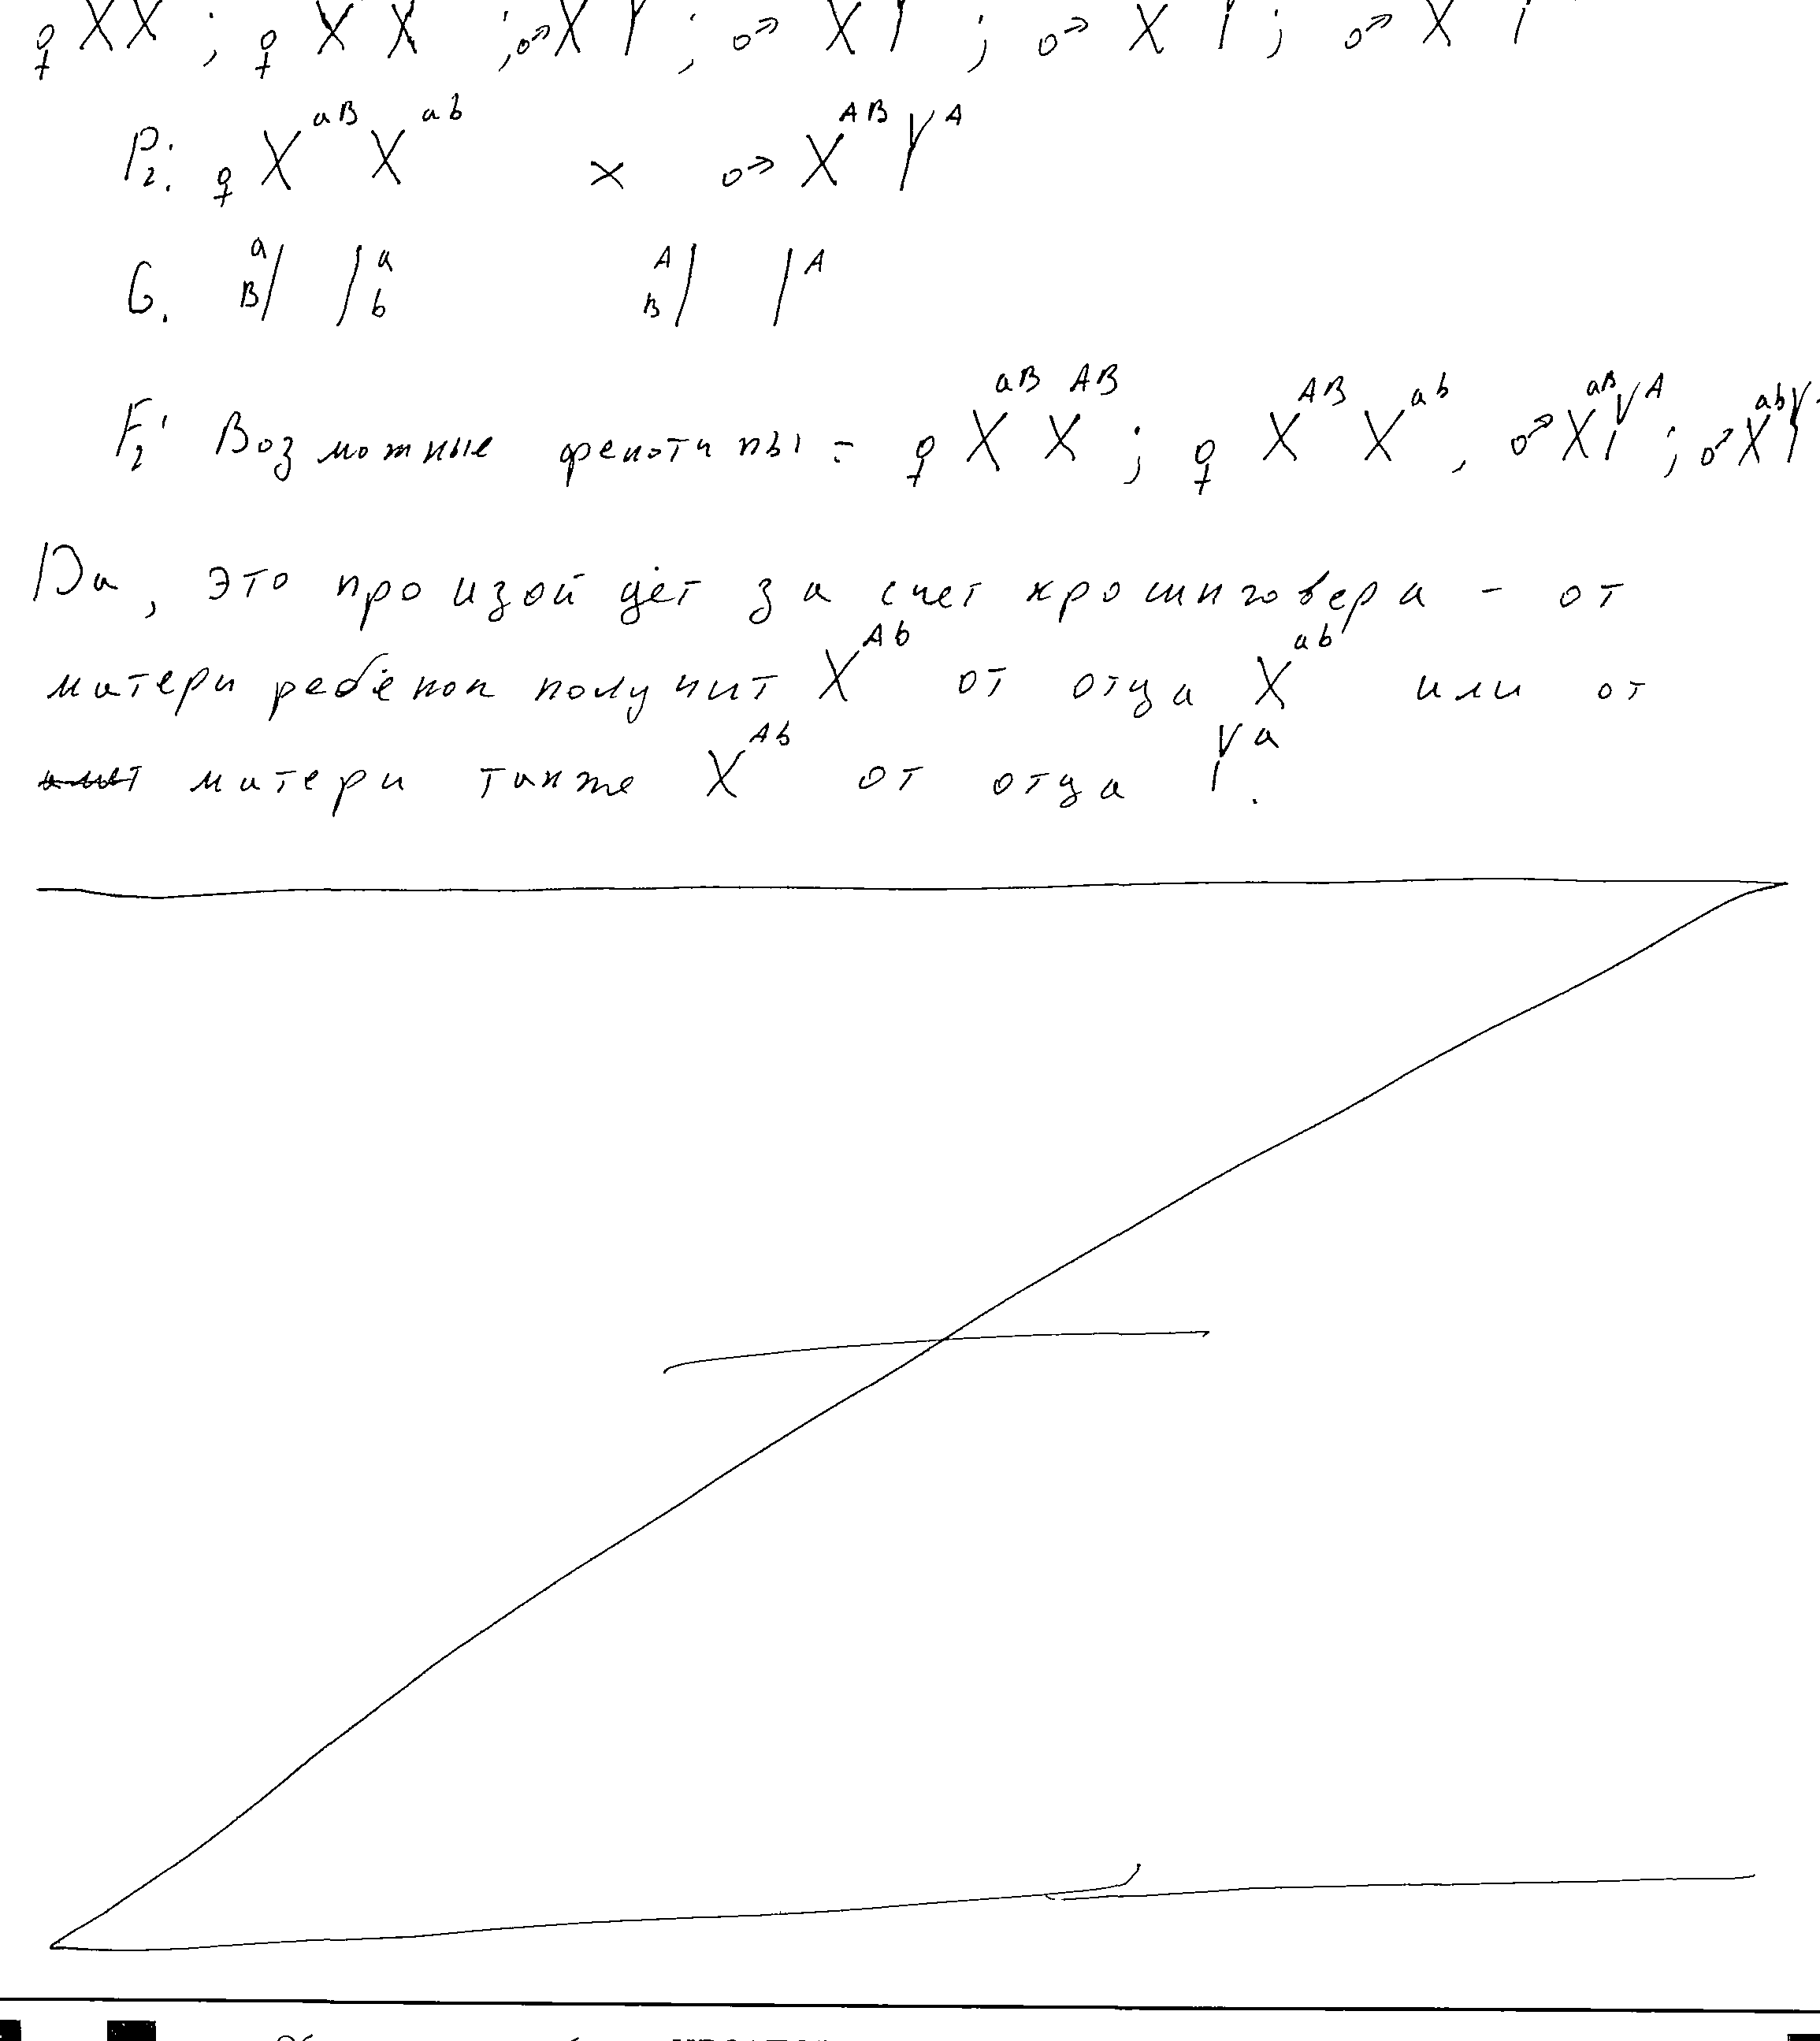 ♀ XX ; ♀ XX ; ♂ XY ; ♂ XY ; ♂ XY ; ♂ XY
P₂: ♀ X^aB X^ab × ♂ X^AB Y^A
G. aB/ /ab AB/ /A
F₂: Возможные фенотипы = ♀ X^aB X^AB ; ♀ X^AB X^ab , ♂ X^aB Y^A ; ♂ X^ab Y
Да, это произойдёт за счет кроссинговера - от
матери ребёнок получит X^Ab от отца X^ab или от
матери также X^Ab от отца Y^a.